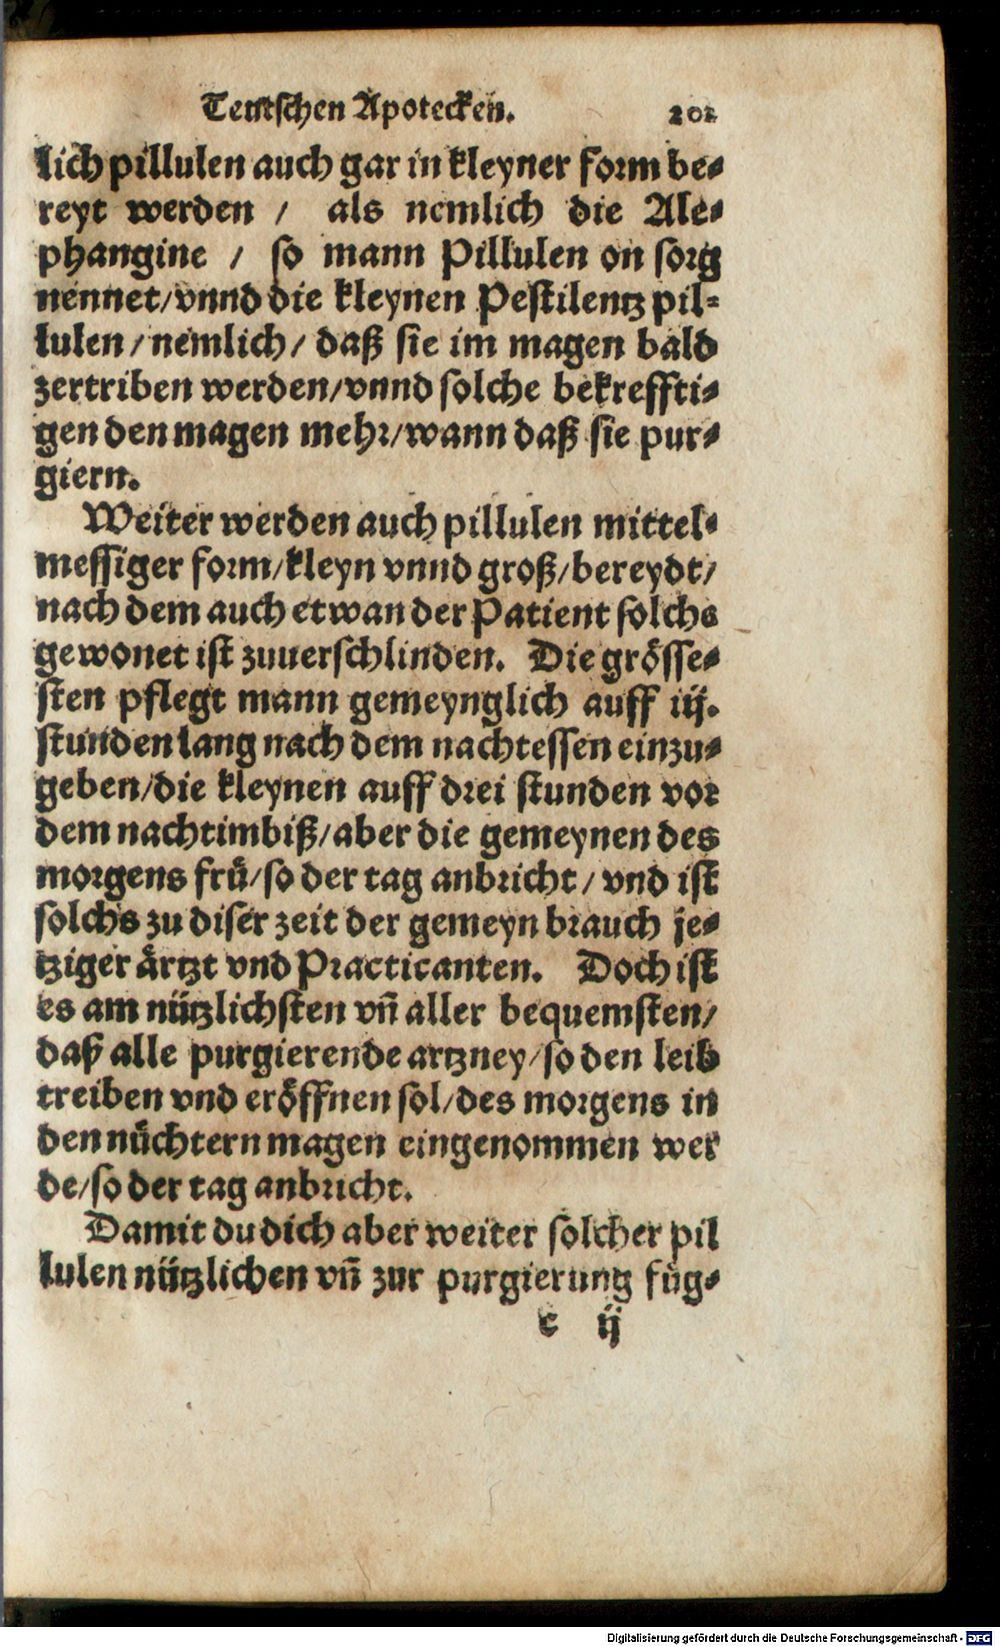 Teutschen Apotecken. 202
lich pillulen auch gar in kleyner form be-
reyt werden / als nemlich die Ale-
phangine / so mann Pillulen on sorg
nennet/vnnd die kleynen Pestilentz pil-
lulen/nemlich/daß sie im magen bald
zertriben werden/vnnd solche bekreffti-
gen den magen mehr/wann daß sie pur-
giern.
Weiter werden auch pillulen mittel-
messiger form/kleyn vnnd groß/bereydt/
nach dem auch etwan der Patient solchs
gewonet ist zuuerschlinden. Die grösse-
sten pflegt mann gemeynglich auff iij.
stunden lang nach dem nachtessen einzu-
geben/die kleynen auff drei stunden vor
dem nachtimbiß/aber die gemeynen des
morgens frü/so der tag anbricht/vnd ist
solchs zu diser zeit der gemeyn brauch je-
tziger ärtzt vnd Practicanten. Doch ist
es am nützlichsten vñ aller bequemsten/
daß alle purgierende artzney/so den leib
treiben vnd eröffnen sol/des morgens in
den nüchtern magen eingenommen wer
de/so der tag anbricht.
Damit du dich aber weiter solcher pil
lulen nützlichen vñ zur purgierung füg-
c ij
Digitalisierung gefördert durch die Deutsche Forschungsgemeinschaft - DFG